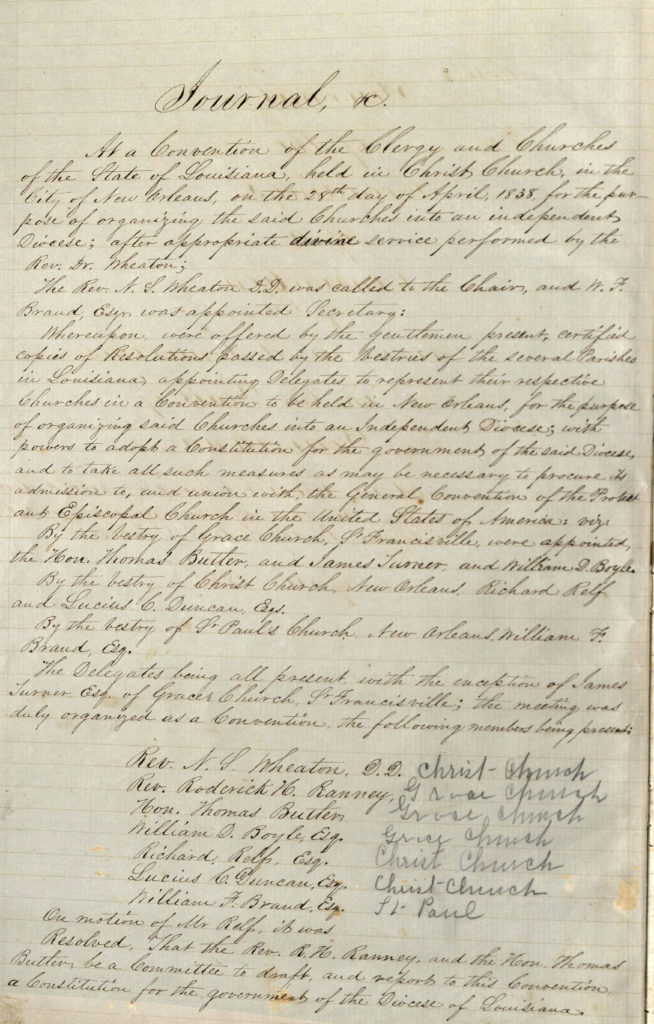 Journal, &c.
At a Convention of the Clergy and Churches
of the State of Louisiana, held in Christ Church, in the
City of New Orleans, on the 28th day of April, 1838, for the pur-
pose of organizing the said Churches into an independent
Diocese; after appropriate divine service performed by the
Rev. Dr. Wheaton;
The Rev. N. S. Wheaton D.D. was called to the Chair, and W. F.
Brand, Esqr. was appointed Secretary:
Whereupon, were offered by the gentlemen present, certified
copies of Resolutions passed by the Vestries of the several Parishes
in Louisiana, appointing Delegates to represent their respective
Churches in a Convention to be held in New Orleans, for the purpose
of organizing said Churches into an Independent Diocese; with
powers to adopt a Constitution for the government of the said Diocese,
and to take all such measures as may be necessary to procure its
admission to, and union with, the General Convention of the Protest
ant Episcopal Church in the United States of America: viz:
By the Vestry of Grace Church, St Francisville, were appointed,
the Hon. Thomas Butler, and James Turner, and William D. Boyle.
By the Vestry of Christ Church, New Orleans, Richard Relf
and Lucius C. Duncan, Eqs.
By the Vestry of St Paul's Church, New Orleans, William F.
Brand, Esq.
The Delegates being all present, with the exception of James
Turner, Esq. of Grace Church, St Francisville; the meeting was
duly organized as a Convention, the following members being present:
Rev. N. S. Wheaton, D.D. Christ-Church
Rev. Roderick H. Ranney, Grace Church
Hon. Thomas Butler, Grace Church
William D. Boyle, Esq. Grace Church
Richard Relf, Esq. Christ Church
Lucius C. Duncan, Esq. Christ-Church
William F. Brand, Esq. St-Paul
On motion of Mr Relf, it was
Resolved, That the Rev. R. H. Ranney, and the Hon. Thomas
Butler, be a Committee to draft, and report to this Convention,
a Constitution for the government of the Diocese of Louisiana.